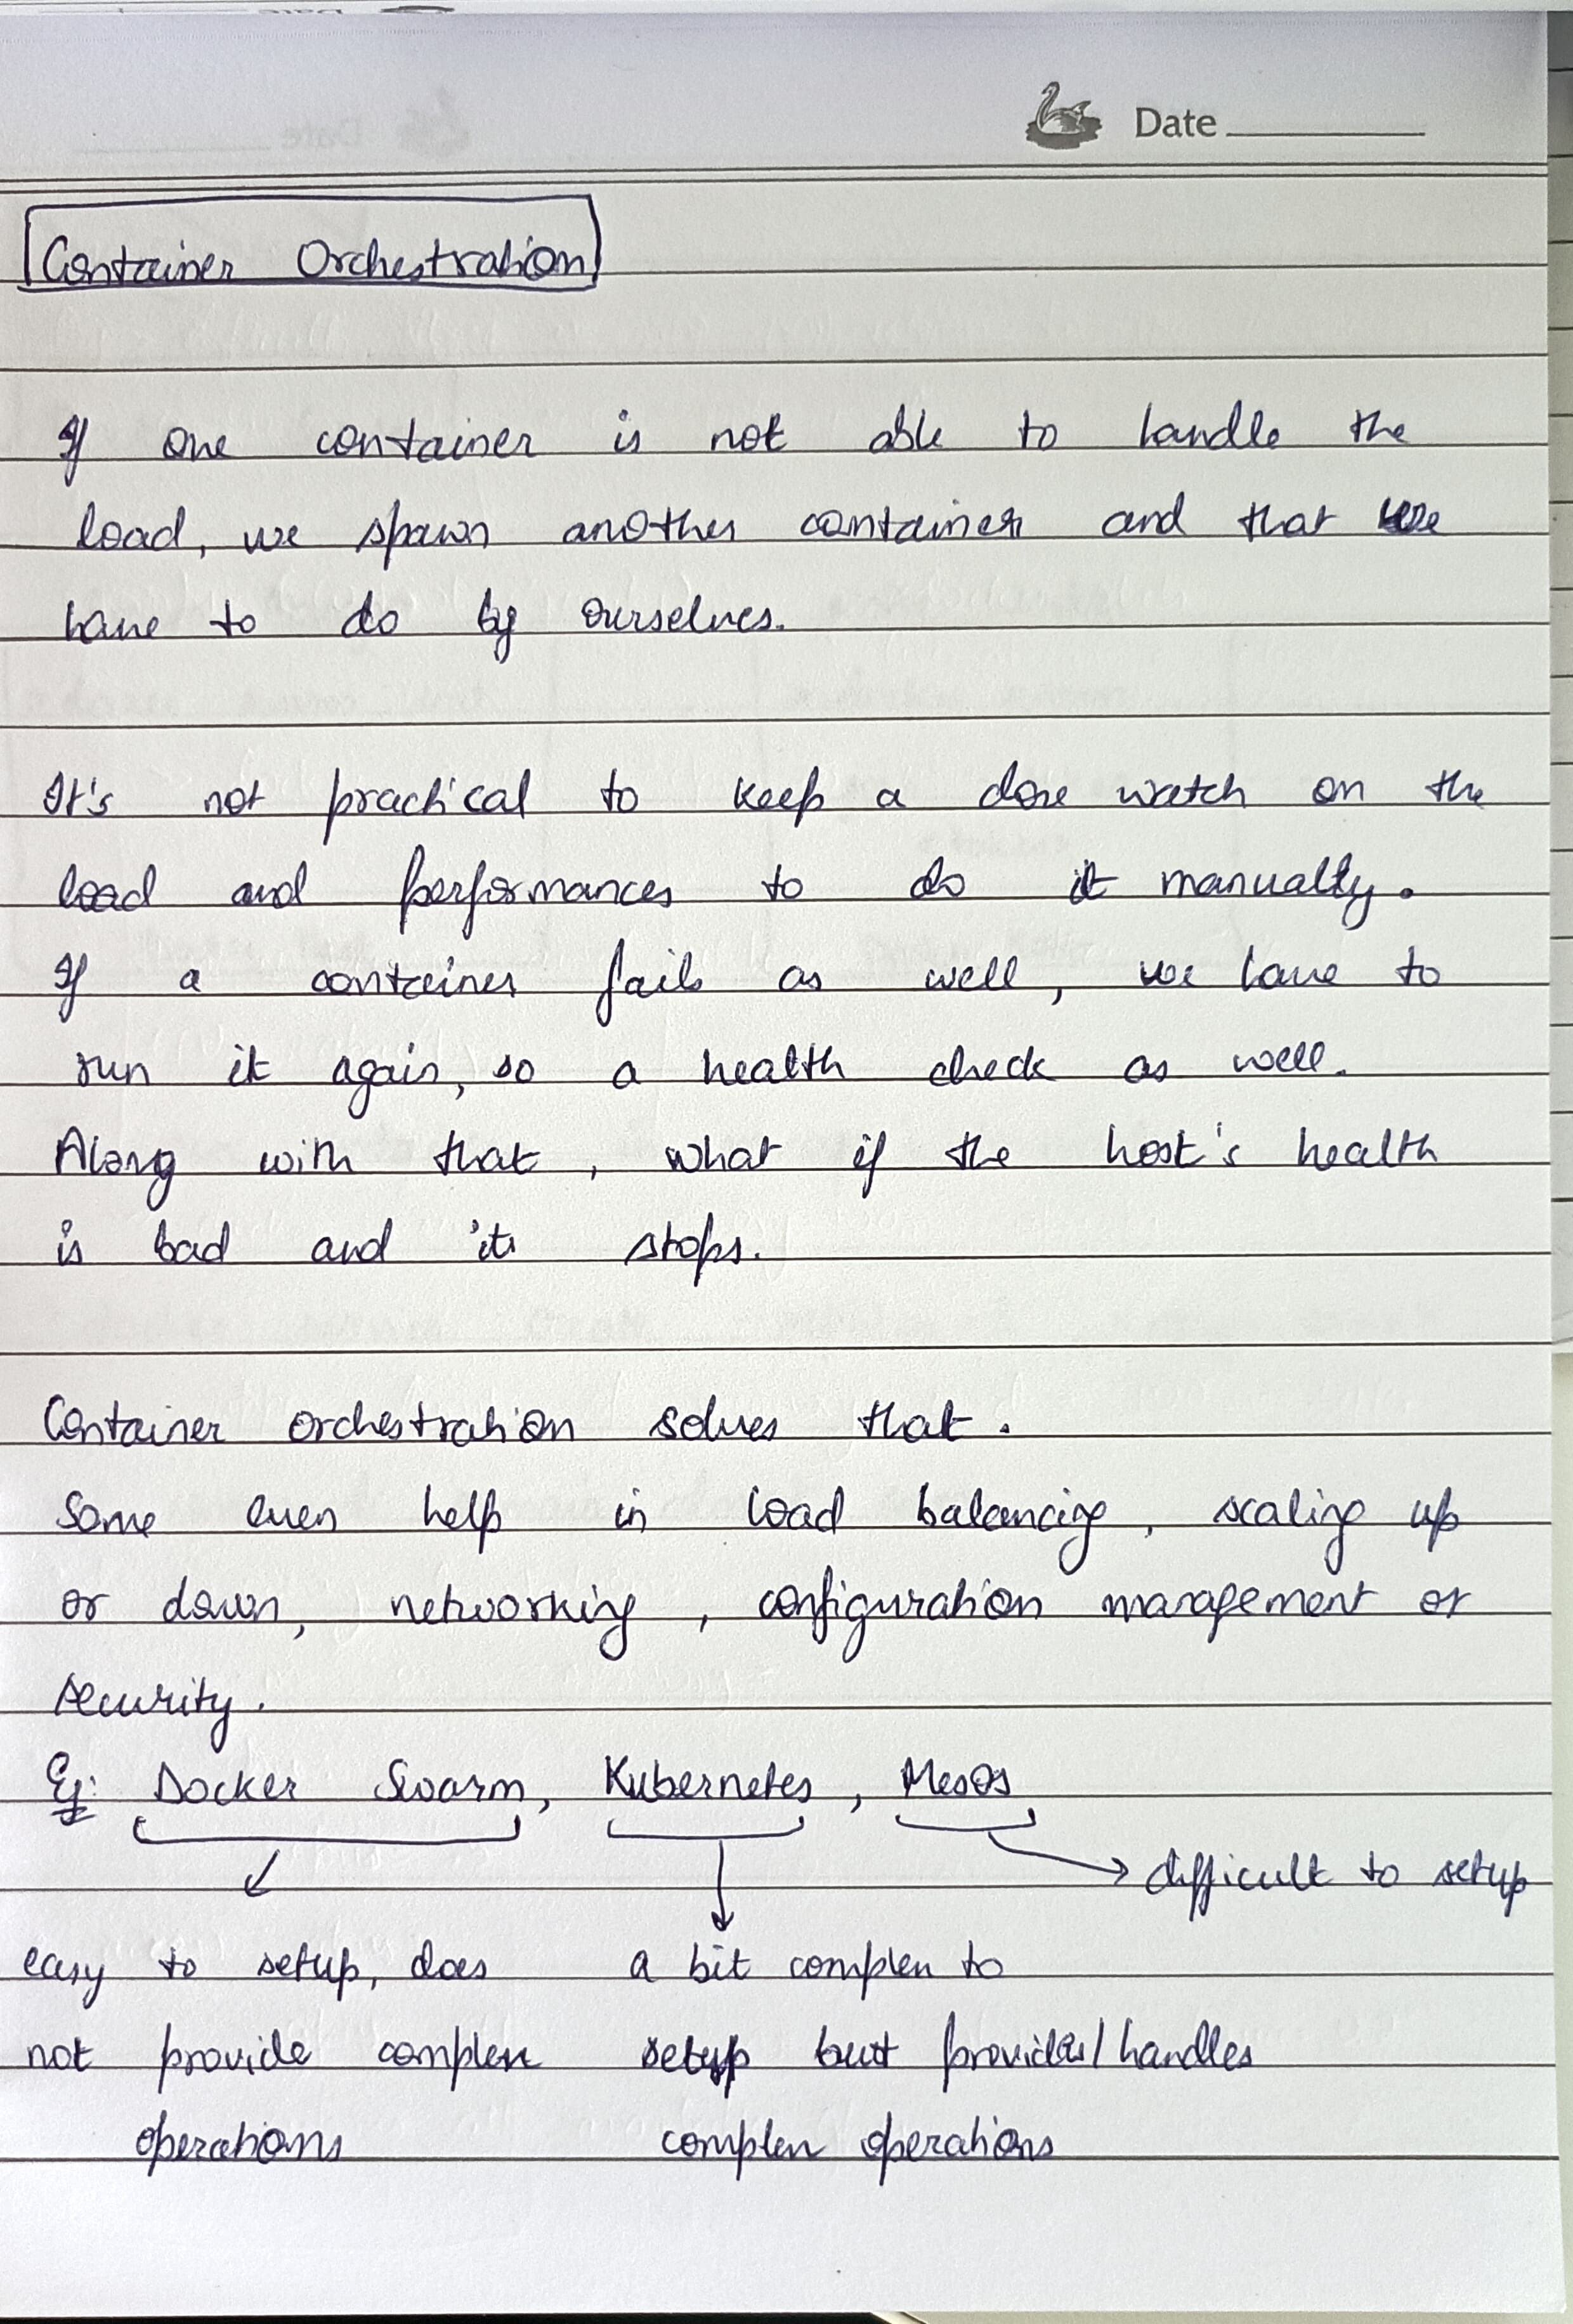 Date
Container Orchestration
If one container is not able to handle the
load, we spawn another container and that we
have to do by ourselves.
It's not practical to keep a close watch on the
load and performances to do it manually.
If a container fails as well, we have to
run it again, so a health check as well.
Along with that, what if the host's health
is bad and it stops.
Container orchestration solves that.
Some even help in load balancing, scaling up
or down, networking, configuration management or
security.
Eg: Docker Swarm, Kubernetes, Mesos
difficult to setup
easy to setup, does
not provide complex
operations
a bit complex to
setup but provides/handles
complex operations